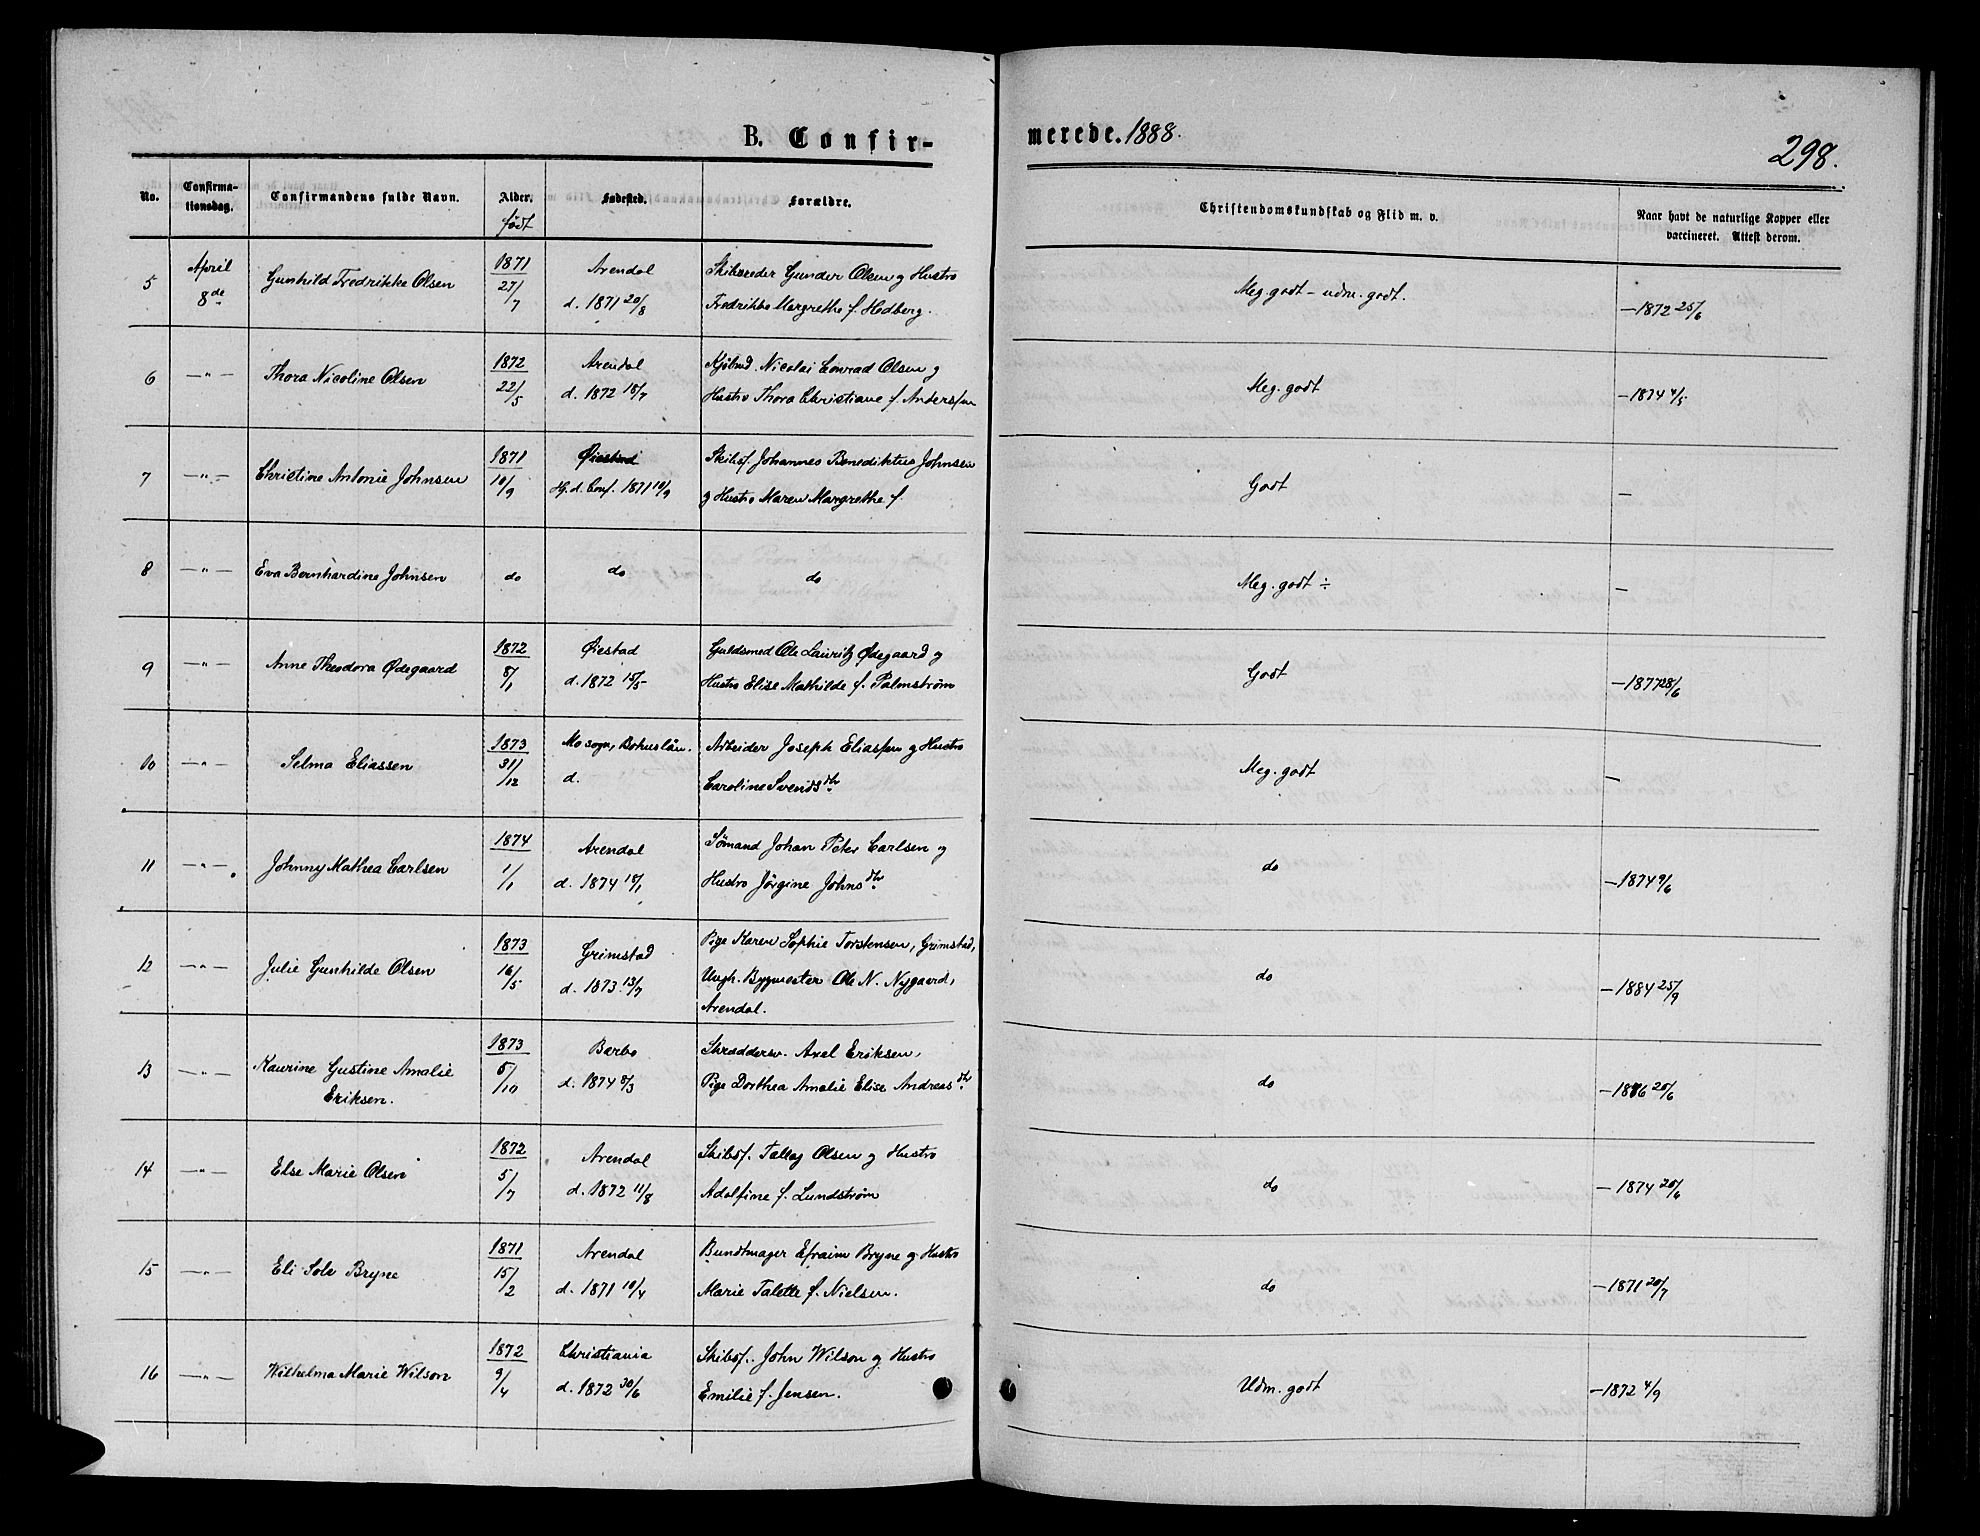 B. Confir-
merede. 1888.
298.
No. Confirma-tionsdag. Confirmandens fulde Navn. Alder. født Fødested. Forældre. Christendomskundskab og Flid m. v. Naar havt de naturlige Kopper eller vaccineret. Attest derom.
April 1871 Arendal Skibsreder Gunder Olsen og Hustro
5 8de Gunhild Fredrikke Olsen 27/7 d. 1871 20/8 Fredrikke Margrethe f. Hedberg. Meg. godt - udm. godt. - 1872 25/6
1872 Arendal Kjøbmd Nicolai Conrad Olsen og
6 -"- Thora Nicoline Olsen 22/5 d. 1872 18/7 Hustro Thora Christiane f. Anderssen Meg. godt - 1874 4/5
1871 Øiestad Skibsf. Johannes Benediktus Johnsen
7 -"- Christine Antonie Johnsen 10/9 Hj. d. Conf. 1871 10/9 og Hustro Maren Margrethe f. Godt -
8 -"- Eva Bernhardine Johnsen do do do Meg. godt ÷ -
1872 Øiestad Guldsmed Ole Lauritz Ødegaard og
9 -"- Anne Theodora Ødegaard 8/1 d. 1872 15/5 Hustro Elise Mathilde f. Palmstrøm Godt - 1877 28/6
1873 Mo sogn, Bohuslän. Arbeider Joseph Eliassen og Hustro
10 -"- Selma Eliassen 31/12 d. Caroline Svendsdtr Meg. godt -
1874 Arendal Sømand Johan Peter Carlsen og
11 -"- Johnny Mathea Carlsen 1/1 d. 1874 18/1 Hustro Jørgine Johnsdtr do - 1874 9/6
1873 Grimstad Pige Karen Sophie Torstensen, Grimstad,
12 -"- Julie Gunhilde Olsen 16/5 d. 1873 13/7 Ungk. Bygmester Ole N. Nygaard, do - 1884 25/9
Arendal.
1873 Barbo Skræddersv. Axel Eriksen,
13 -"- Kaurine Gustine Amalie 5/10 d. 1874 8/3 Pige Dorthea Amalie Elise Andreasdtr do - 1876 20/6
Eriksen.
1872 Arendal Skibsf. Tallag Olsen og Hustro
14 -"- Else Marie Olsen 5/7 d. 1872 11/8 Adolfine f. Lundstrøm do - 1874 20/6
1871 Arendal Bundtmager Efraim Bryne og Hustro
15 -"- Eli Solv Bryne 15/2 d. 1871 10/4 Marie Talette f. Nielsen. do - 1871 20/7
1872 Christiania Skibsf. John Wilson og Hustro
16 -"- Wilhelma Marie Wilson 9/4 d. 1872 30/6 Emilie f. Jensen. Udm. godt - 1872 4/9